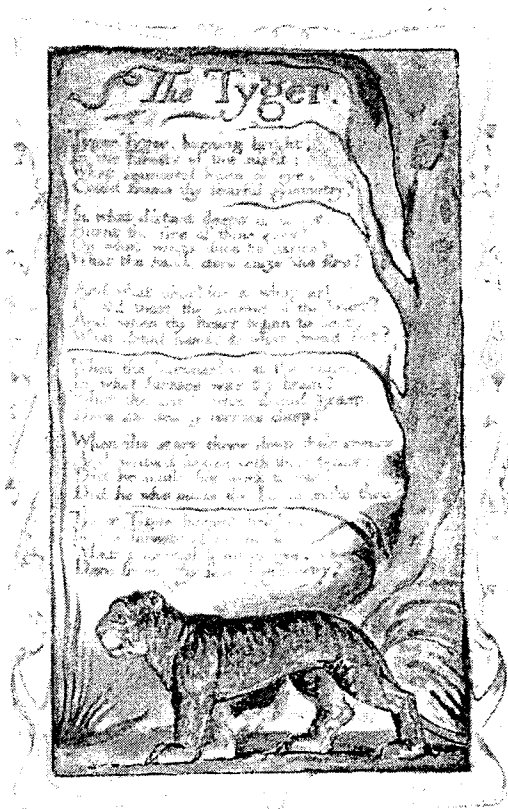 The Tyger.
Tyger Tyger, burning bright,
In the forests of the night;
What immortal hand or eye,
Could frame thy fearful symmetry?
In what distant deeps or
Burnt the fire of thine eyes?
On what wings dare he aspire?
What the hand, dare sieze the fire?
And what shoulder, & what art,
Could twist the sinews of thy heart?
And when thy heart began to beat,
What dread hand? & what dread feet?
What the hammer? what the
In what furnace was thy brain?
What the anvil? what dread grasp,
Dare its deadly terrors clasp?
When the stars threw down their spears
with their tears:
Did he smile his work to see?
Did he who made the Lamb make thee?
Tyger Tyger burning bright,
In the forests of the
What immortal hand or eye,
Dare frame thy fearful symmetry?